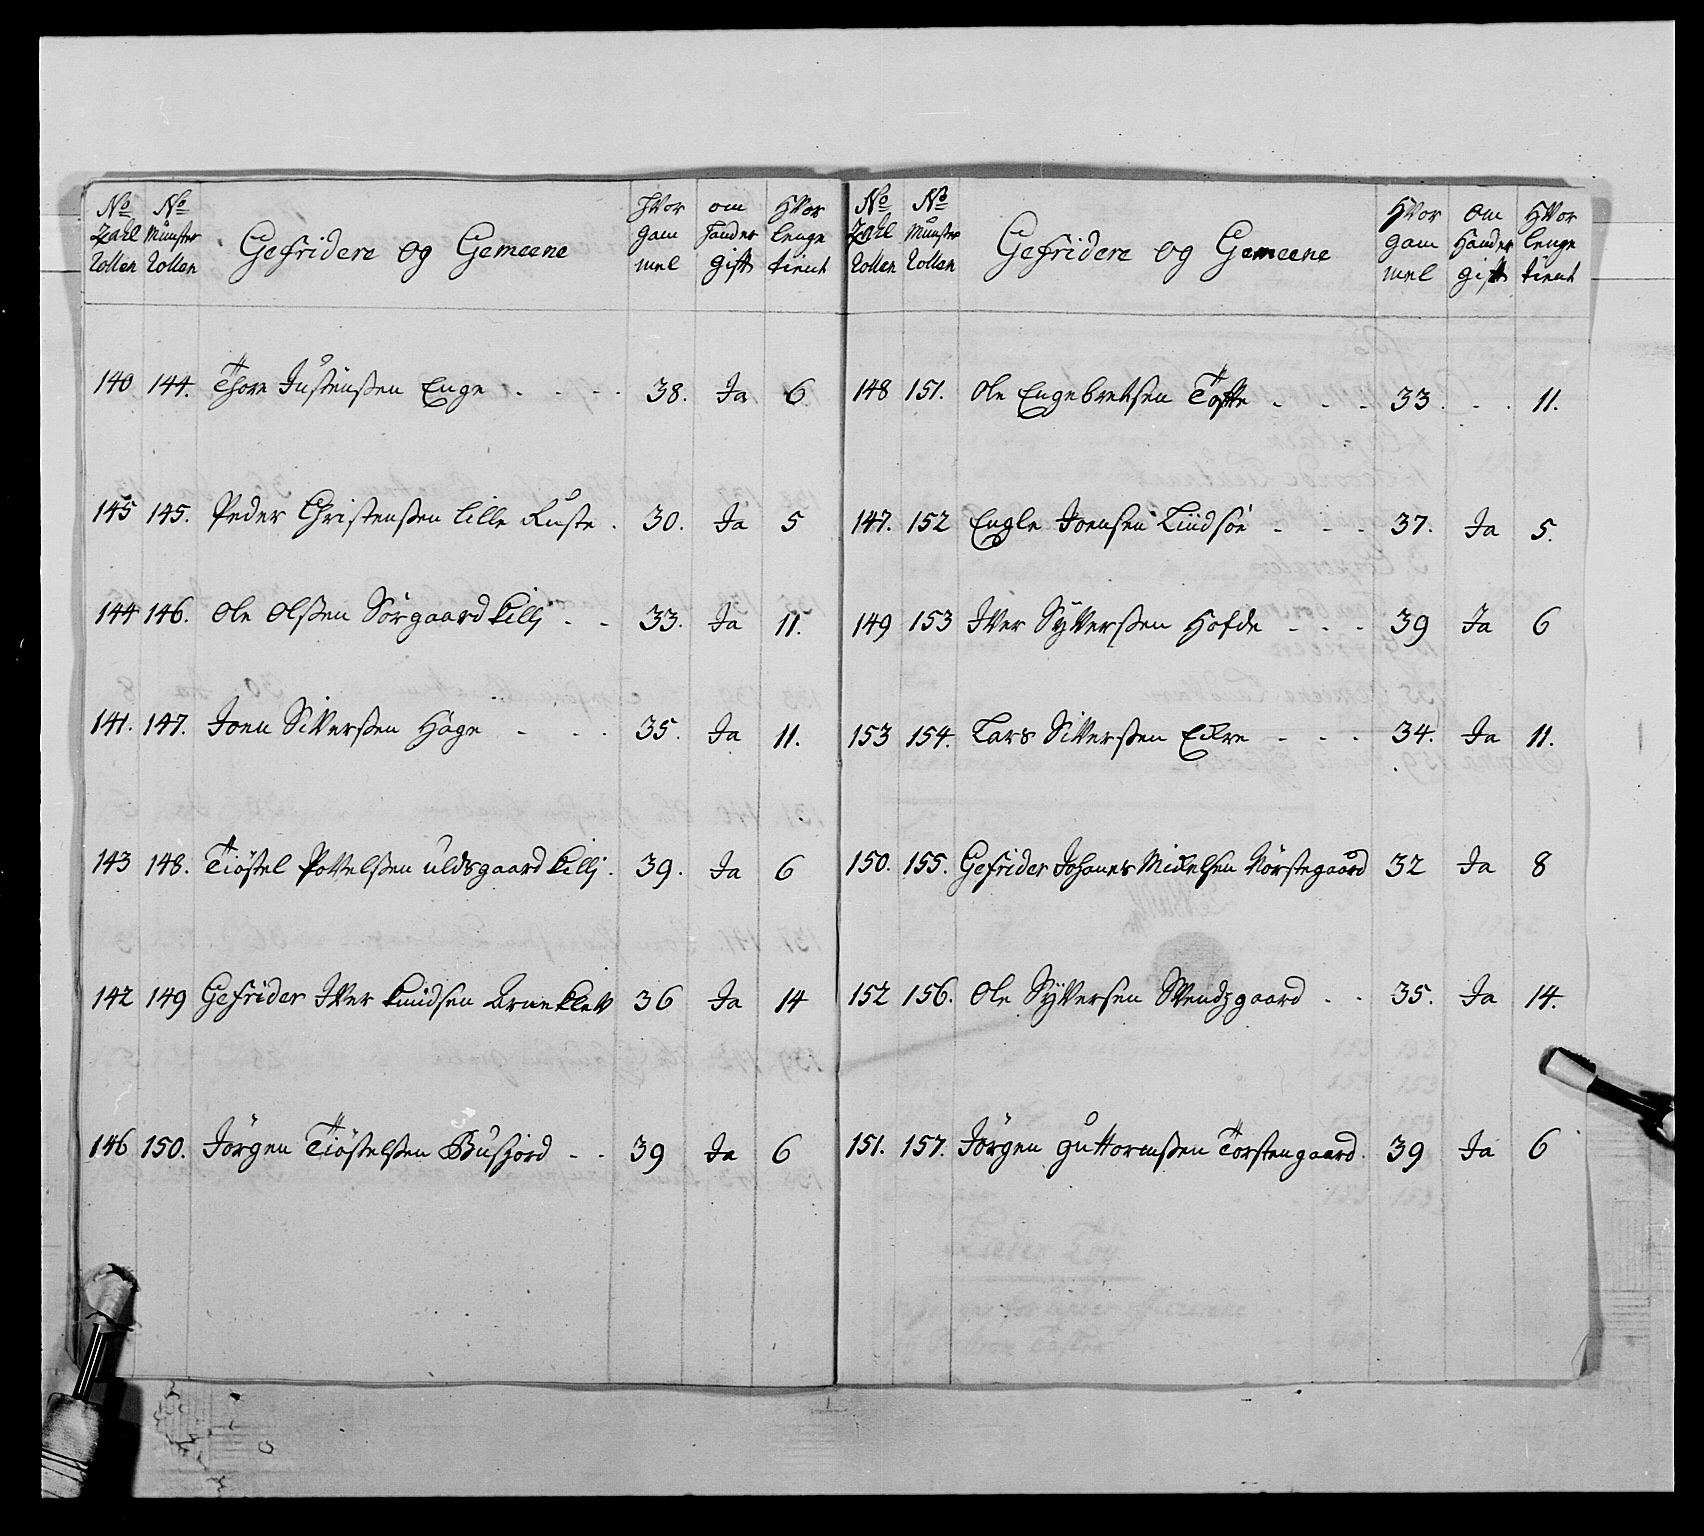 No Zahl Rollen | No Munster Rollen | Gefridere og Gemeene | Hvor gam mel | om hander gift | Hvor lenge tient
140 144. Thore Justensen Enge . . . . 38. Ja 6
145 145. Peder Christensen Lille Ruste . 30. Ja 5
144 146. Ole Olsen Sörgaard Killj . . 33. Ja 11.
141. 147. Joen Siversen Häge . . . 35. Ja 11.
143 148. Tiöstel Povelsen uldsgaard Killj . 39. Ja 6
142 149 Gefrider Iver Knudsen Arneklev 36 Ja 14
146 150. Jörgen Tiöstelsen Busjord . . 39 Ja 6
No Zahl Rollen | No Munster Rollen | Gefridere og Gemeene | Hvor gam mel | Om Hander gift | Hvor lenge tient
148 151. Ole Engebretsen Tofte . . . 33 . . . 11.
147. 152 Engle Joensen Lundsöe . . . 37. Ja 5.
149 153 Iver Syversen Hofde . . . 39 Ja 6
153 154. Lars Siversen Ekre . . . 34. Ja 11.
150. 155. Gefrider Johanes Mikelsen Nörstegaard 32 Ja 8
152 156. Ole Syversen Svendzgaard . . 35. Ja 14.
151. 157. Jörgen Guttormsen Torstengaard . 39 Ja 6